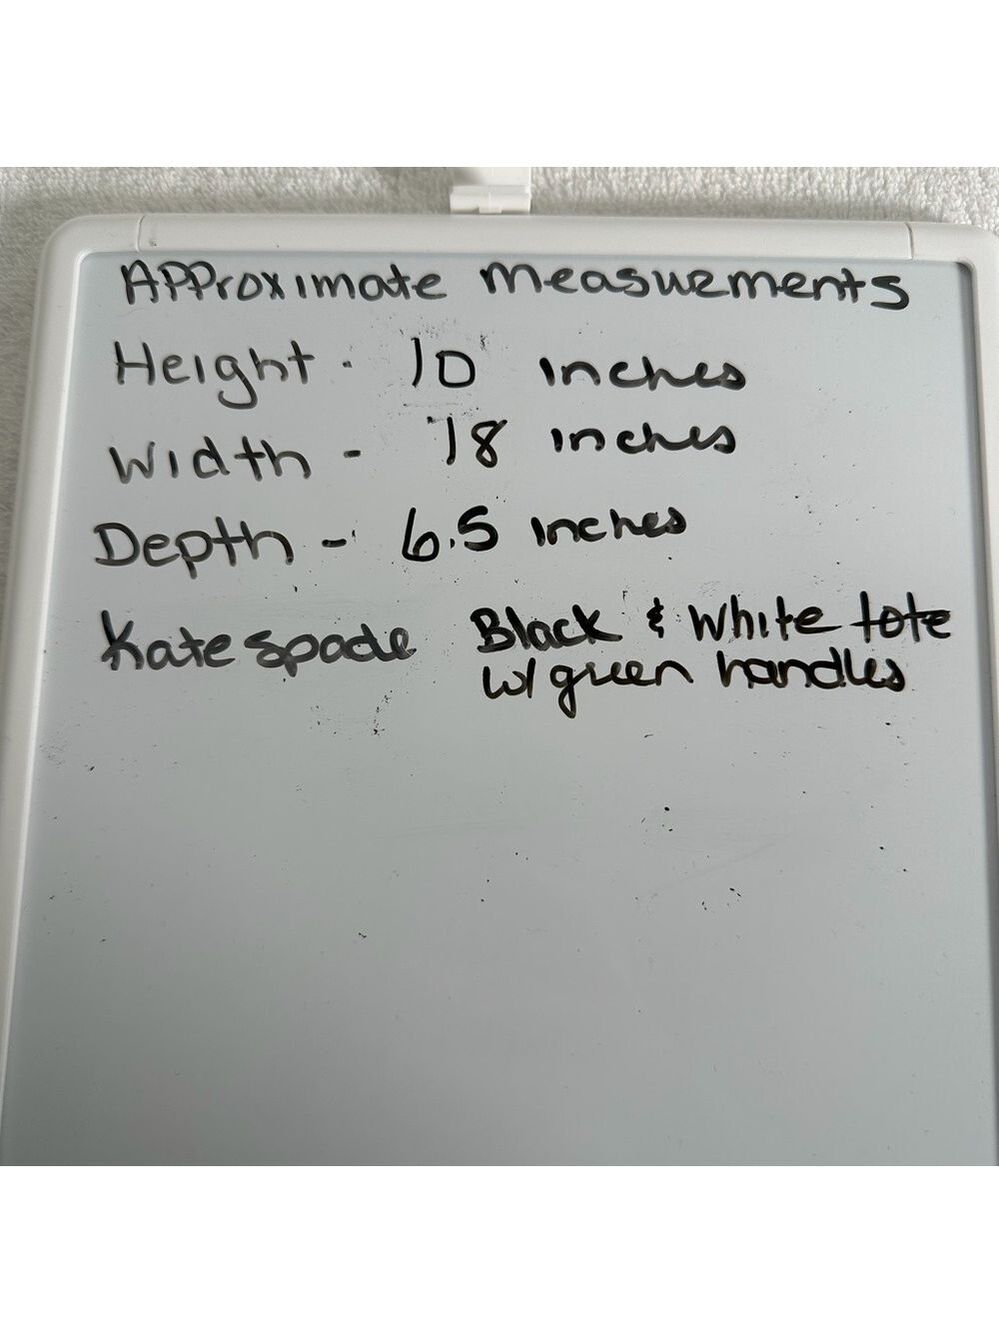 Approximate Measurements
Height - 10 inches
Width - 18 inches
Depth - 6.5 inches
Kate spade Black & White tote
w/ green handles